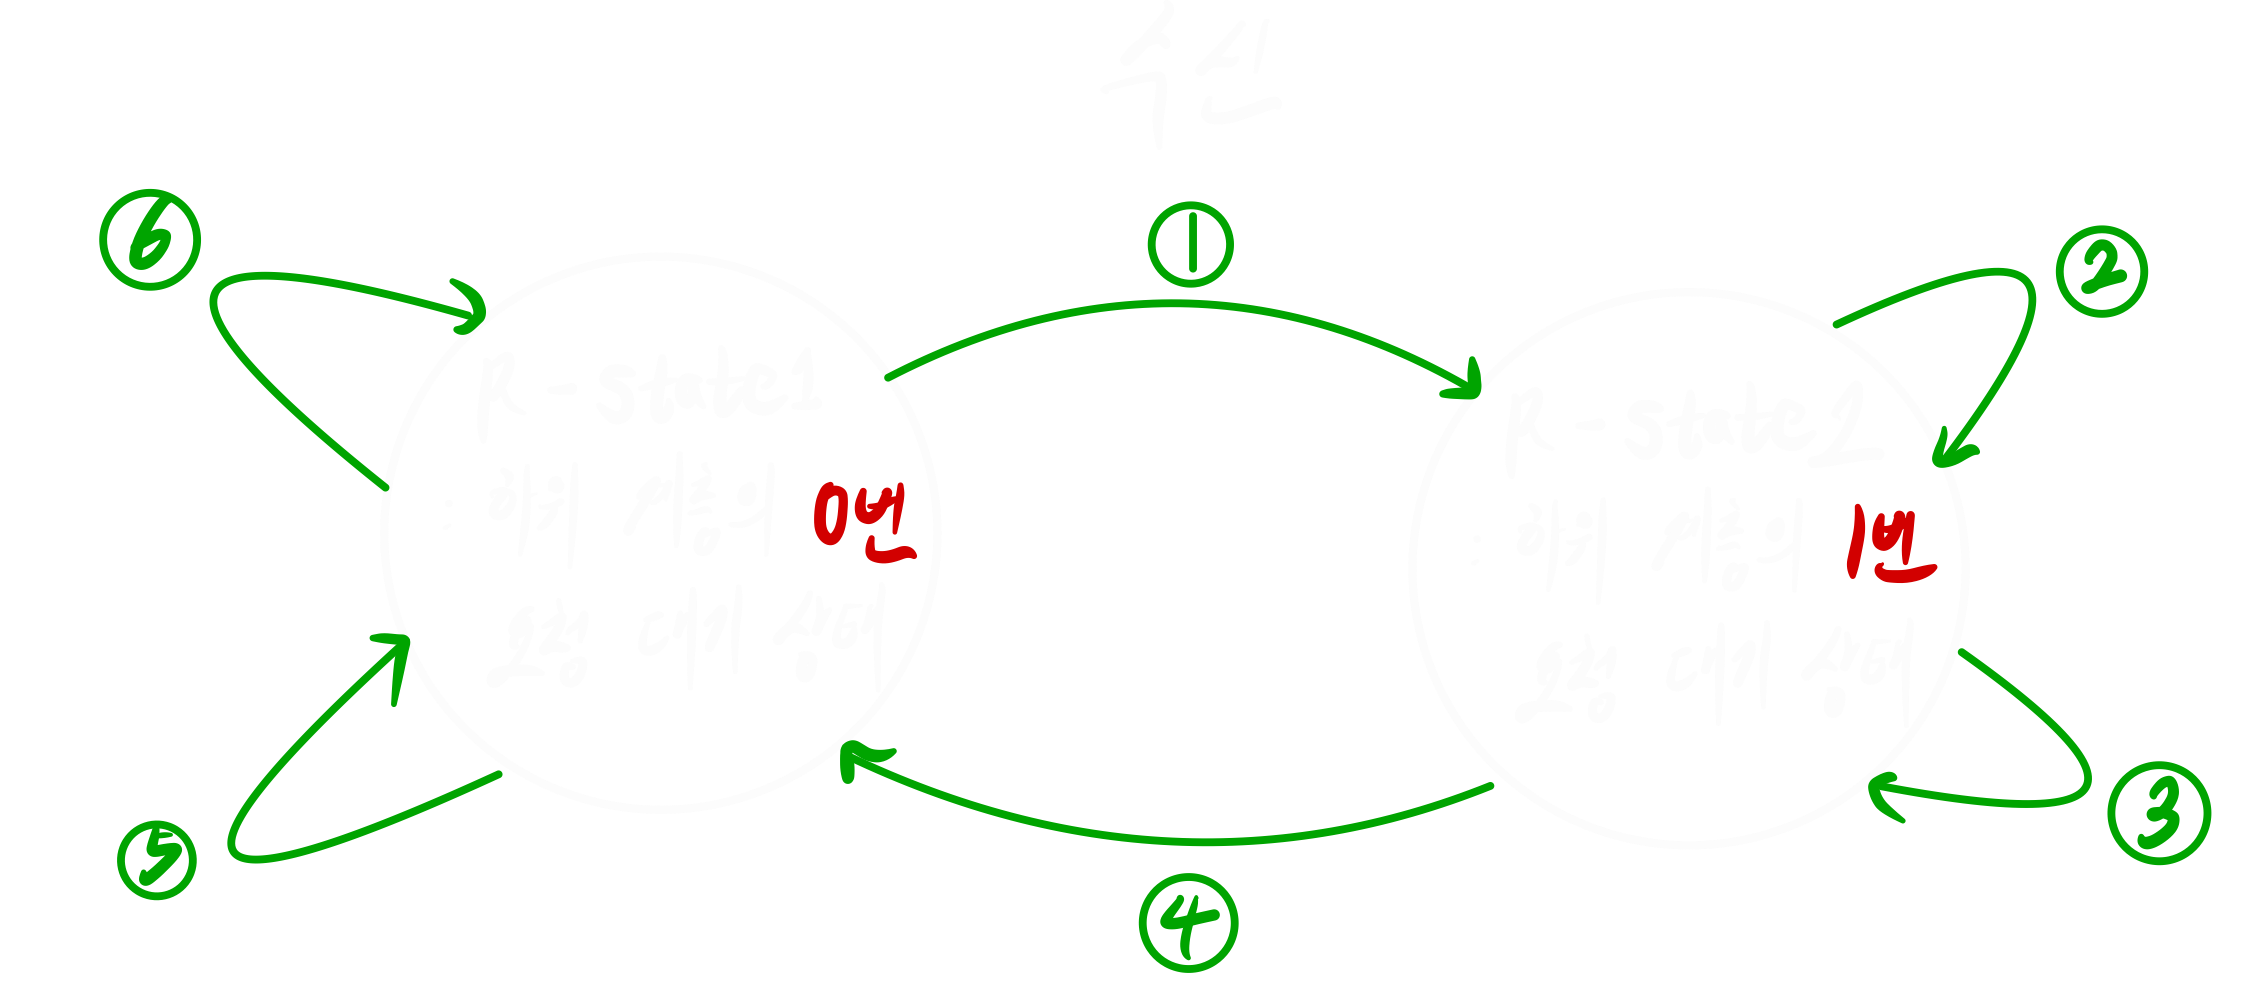 수신
⑥
①
②
R-state1
: 하위 계층의
0번
요청 대기 상태
R-state2
: 하위 계층의
1번
요청 대기 상태
⑤
④
③